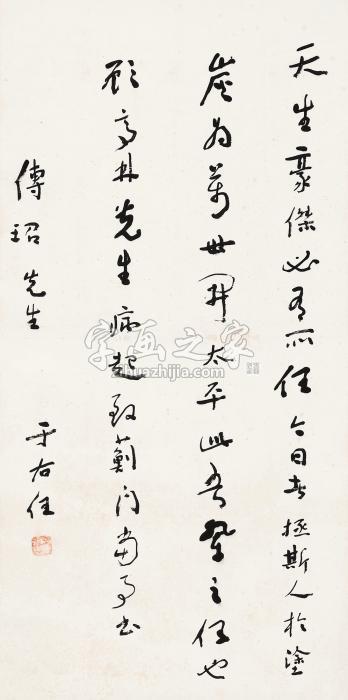 天生豪傑必有所任今日者拯斯人於塗
炭為萬世開太平此吾輩之任也
顧亭林先生病起致薊門當事書
傳玿先生
于右任
字画之家
zihuazhijia.com